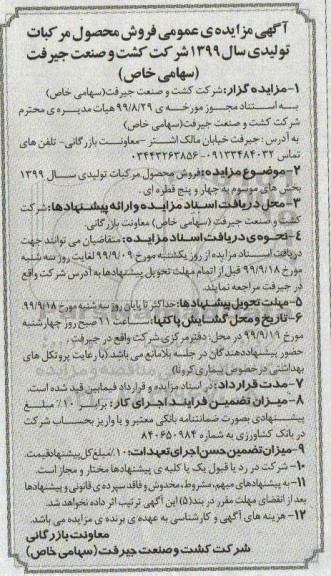 آگهی مزایده ی عمومی فروش محصول مرکبات
تولیدی سال ۱۳۹۹ شرکت کشت و صنعت جیرفت
(سهامی خاص)
۱-مزایده گزار: شرکت کشت و صنعت جیرفت (سهامی خاص)
به استناد مجوز مورخه ی ۹۹/۸/۲۹ هیات مدیره ی محترم
شرکت کشت و صنعت جیرفت (سهامی خاص)
به آدرس: جیرفت خیابان مالک اشتر -معاونت بازرگانی- تلفن های
تماس ۰۹۱۳۳۴۸۴۰۳۲-۰۳۴۴۳۲۶۳۸۵۶
۲-موضوع مزایده: فروش محصول مرکبات تولیدی سال ۱۳۹۹
بخش های موسوم به چهار و پنج قطره ای.
۳-محل دریافت اسناد مزایده و ارائه پیشنهادها: شرکت
کشت و صنعت جیرفت (سهامی خاص) معاونت بازرگانی.
۴-نحوه ی دریافت اسناد مزایده: متقاضیان می توانند جهت
دریافت اسناد مزایده از روز یکشنبه مورخ ۹۹/۰۹/۰۹ لغایت روز سه شنبه
مورخ ۹۹/۹/۱۸ قبل از اتمام مهلت تحویل پیشنهادها به آدرس شرکت واقع
در جیرفت مراجعه نمایند.
۵-مهلت تحویل پیشنهادها: حداکثر تا پایان روز سه شنبه مورخ ۹۹/۹/۱۸
۶-تاریخ و محل گشایش پاکتها: ساعت ۱۱ صبح روز چهارشنبه
مورخ ۹۹/۹/۱۹ در محل: دفتر مرکزی شرکت واقع در جیرفت.
حضور پیشنهاددهندگان در جلسه بلامانع می باشد. (با رعایت پروتکل های
بهداشتی در خصوص بیماری کرونا)
۷-مدت قرارداد: در اسناد مزایده و قرارداد فیمابین قید شده است.
۸-میزان تضمین فرایند اجرای کار: برابر ۱۰٪ مبلغ
پیشنهادی بصورت ضمانتنامه بانکی معتبر و یا واریز بحساب شرکت
در بانک کشاورزی به شماره ۸۴۰۶۵۰۹۸۴
۹-میزان تضمین حسن اجرای تعهدات: ۱۰٪ مبلغ کل پیشنهاد قیمت.
۱۰- شرکت در رد یا قبول یک یا کلیه ی پیشنهادها مختار و مجاز است.
۱۱-به پیشنهادهای مبهم، مشروط، مخدوش و فاقد سپرده ی قانونی و پیشنهادها
بعد از انقضای مهلت مقرر در بند(۵) این آگهی ترتیب اثر داده نخواهد شد.
۱۲- هزینه های آگهی و کارشناسی به عهده ی برنده ی مزایده می باشد.
معاونت بازرگانی
شرکت کشت و صنعت جیرفت (سهامی خاص)